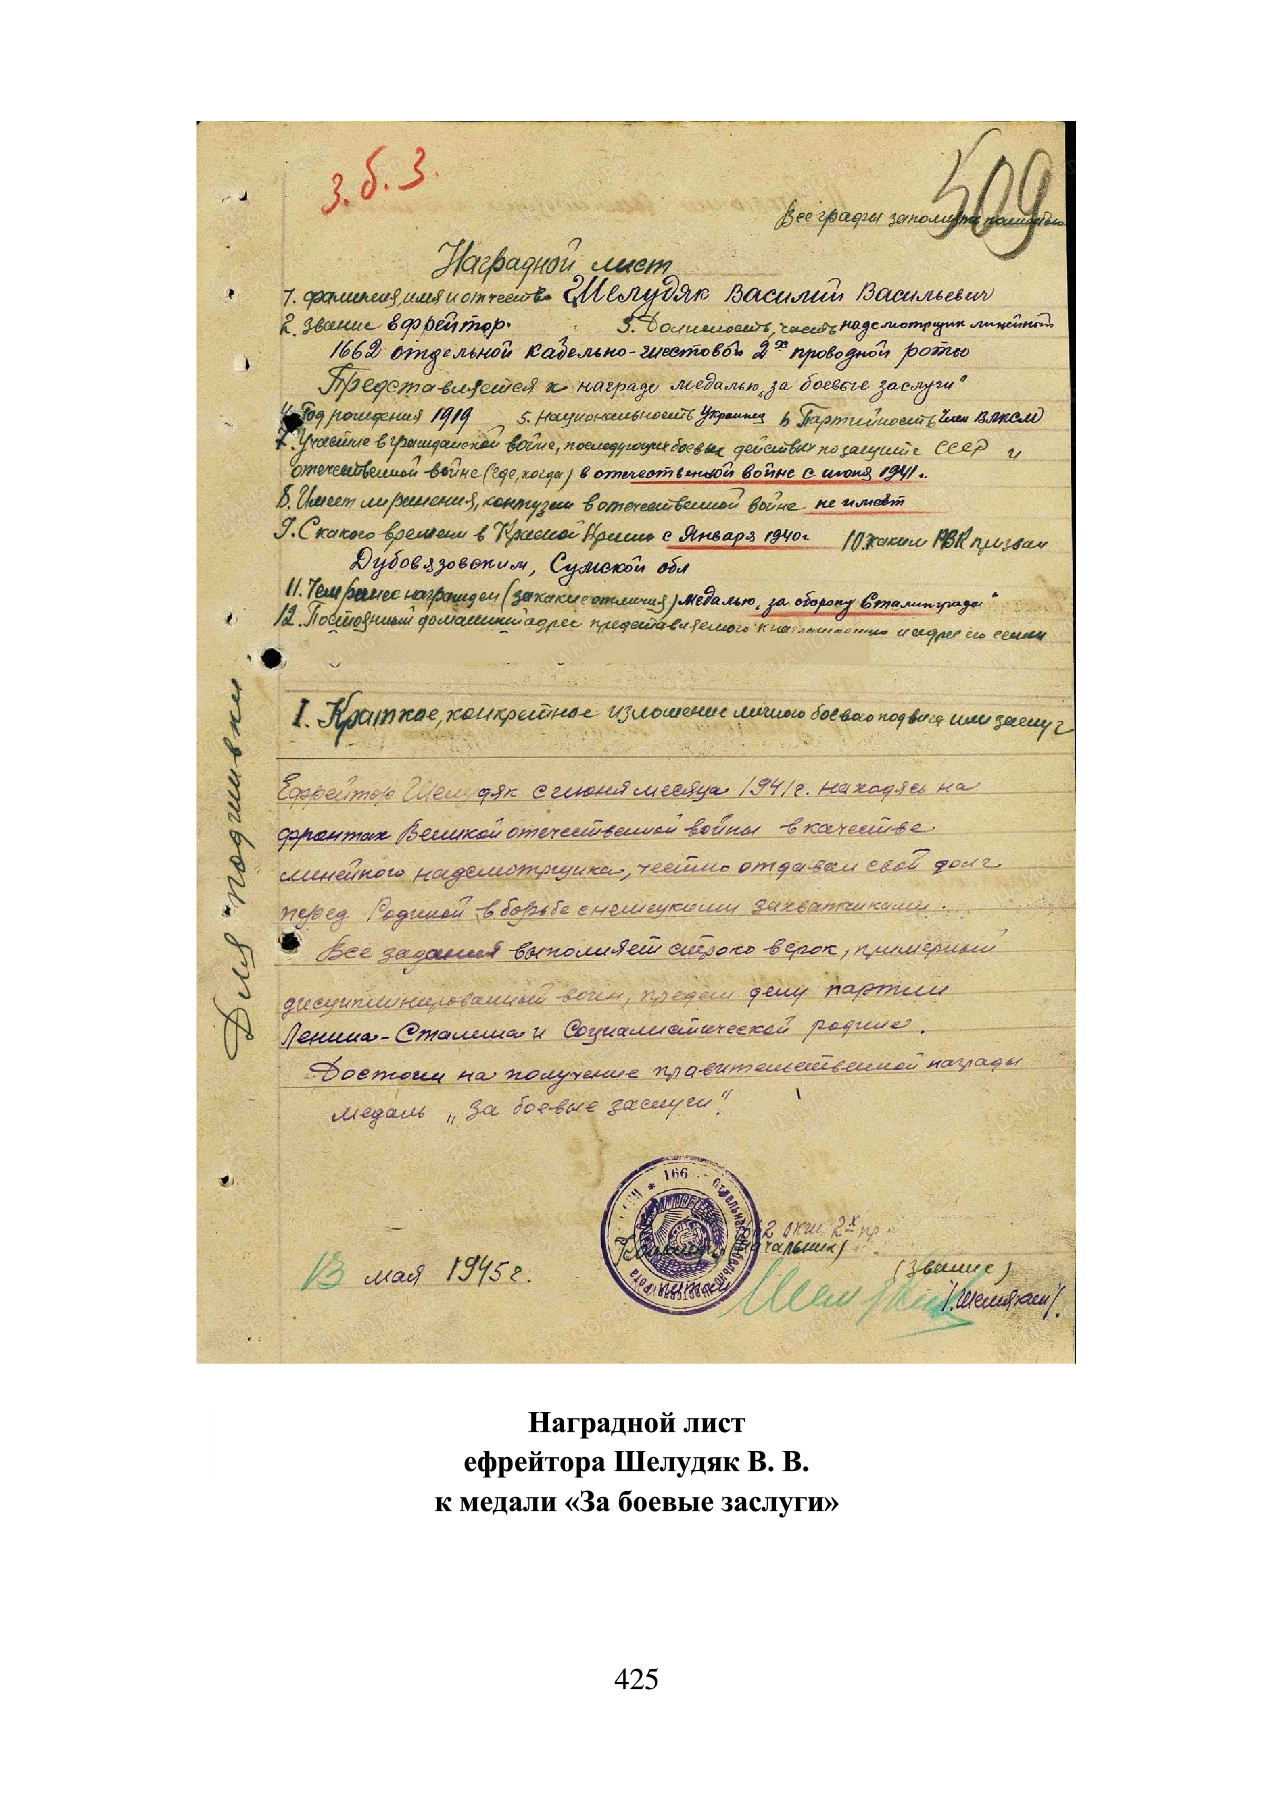 З.б.З.
509
Все графы заполнять полностью
Наградной лист
1. Фамилия имя и отчество Шелудяк Василий Васильевич
2. Звание Ефрейтор. 3. Должность, часть надсмотрщик линейный
1662 отдельной кабельно-шестовой 2х проводной роты
Представляется к награде медалью „За боевые заслуги"
4. Год рождения 1919 5. Национальность Украинец 6 Партийность Член ВЛКСМ
7. Участие в гражданской войне, последующих боевых действиях по защите СССР и
отечественной войне (где, когда) в отечественной войне с июня 1941г.
8. Имеет ли ранения, контузии в отечественной войне не имеет
9. С какого времени в Красной Армии с Января 1940г 10. каким РВК призван
Дубовязовским, Сумской обл
11. Чем ранее награжден (за какие отличия) медалью „за оборону Сталинграда"
12. Постоянный домашний адрес представляемого к награждению и адрес его семьи
Для подшивки.
I. Краткое, конкретное изложение личного боевого подвига или заслуг
Ефрейтор Шелудяк с июня месяца 1941г. находясь на
фронтах Великой отечественной войны в качестве
линейного надсмотрщика, честно отдавал свой долг
перед Родиной в борьбе с немецкими захватчиками.
Все задания выполняет строго верок, примерный
дисциплинированный воин, предан делу партии
Ленина-Сталина и Социалистической родине.
Достоин на получение правительственной награды
медаль „За боевые заслуги".
1662 окш 2х пр
Командир (начальник)
(Звание)
13 мая 1945г.
/Шелякин/.
Наградной лист
ефрейтора Шелудяк В. В.
к медали «За боевые заслуги»
425